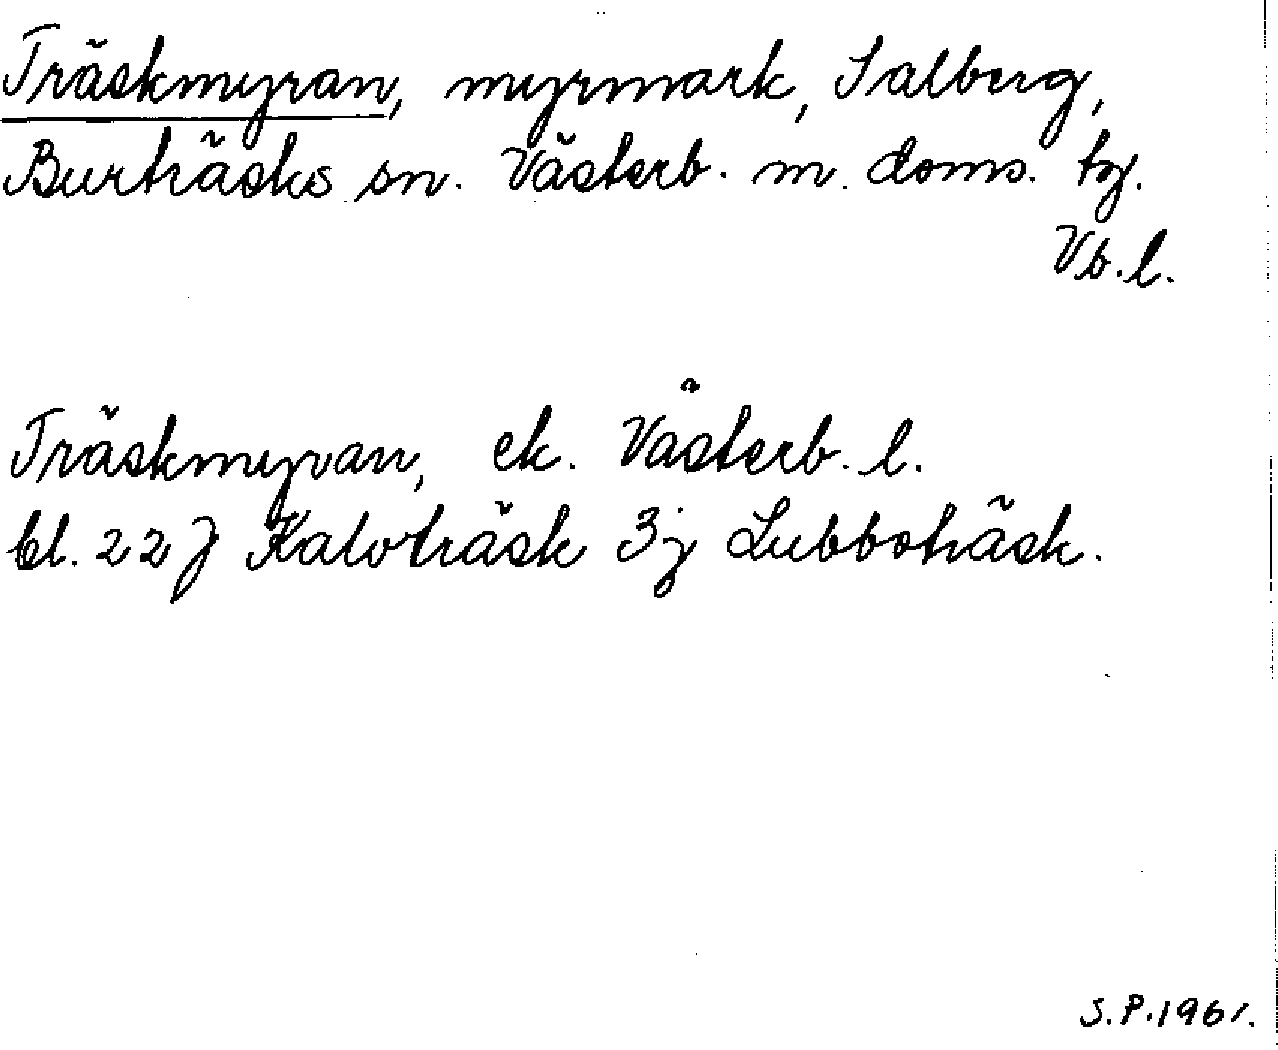 Träskmyran, myrmark, Salberg,
Burträsks sn. Västerb. m. doms. tg.
Vb.l.
Träskmyran, ek. Västerb. l.
bl. 22J Kalvträsk 3j Lubboträsk.
S.P.1961.